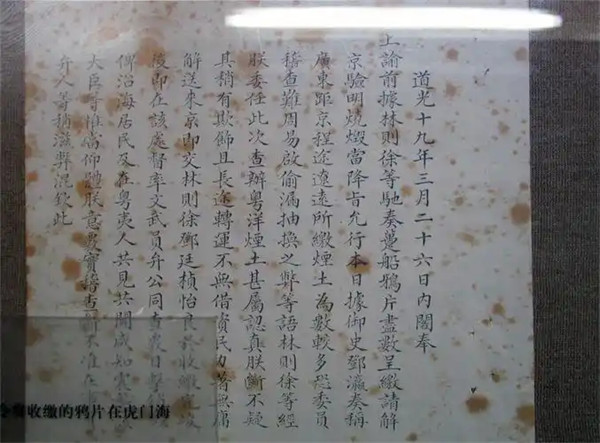 道光十九年三月二十六日內閣奉
上諭前據林則徐等馳奏躉船鴉片盡數呈繳請解
京驗明燒燬當降旨允行本日據御史鄧瀛奏稱
廣東距京程途遼遠所繳煙土為數較多恐委員
稽查難周易啟偷漏抽換之弊等語林則徐等經
朕委任此次查辦粵洋煙土甚屬認真朕斷不疑
其稍有欺飾且長途轉運不無借資民力著無庸
解送來京即交林則徐鄧廷楨怡良於收繳完竣
後即在該處督率文武員弁公同查
俾沿海居民及在粵夷人共見共聞咸知震
大臣等惟當仰體朕意覈實稽查斷不准在
弁人等稍滋弊混欽此
收缴的鸦片在虎门海